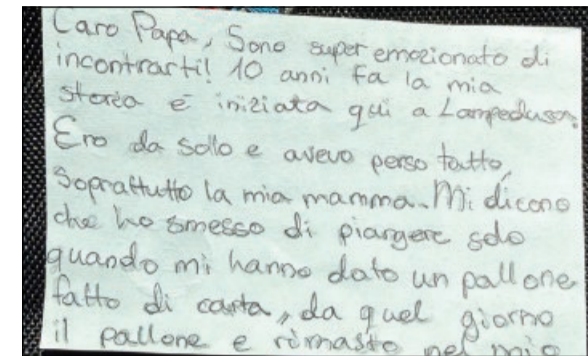 Caro Papa, Sono super emozionato di
incontrarti! 10 anni fa la mia
storia è iniziata qui a Lampedusa.
Ero da sollo e avevo perso tutto,
Soprattutto la mia mamma. Mi dicono
che ho smesso di piangere solo
quando mi hanno dato un pallone
fatto di carta, da quel giorno
il pallone è rimasto nel mio